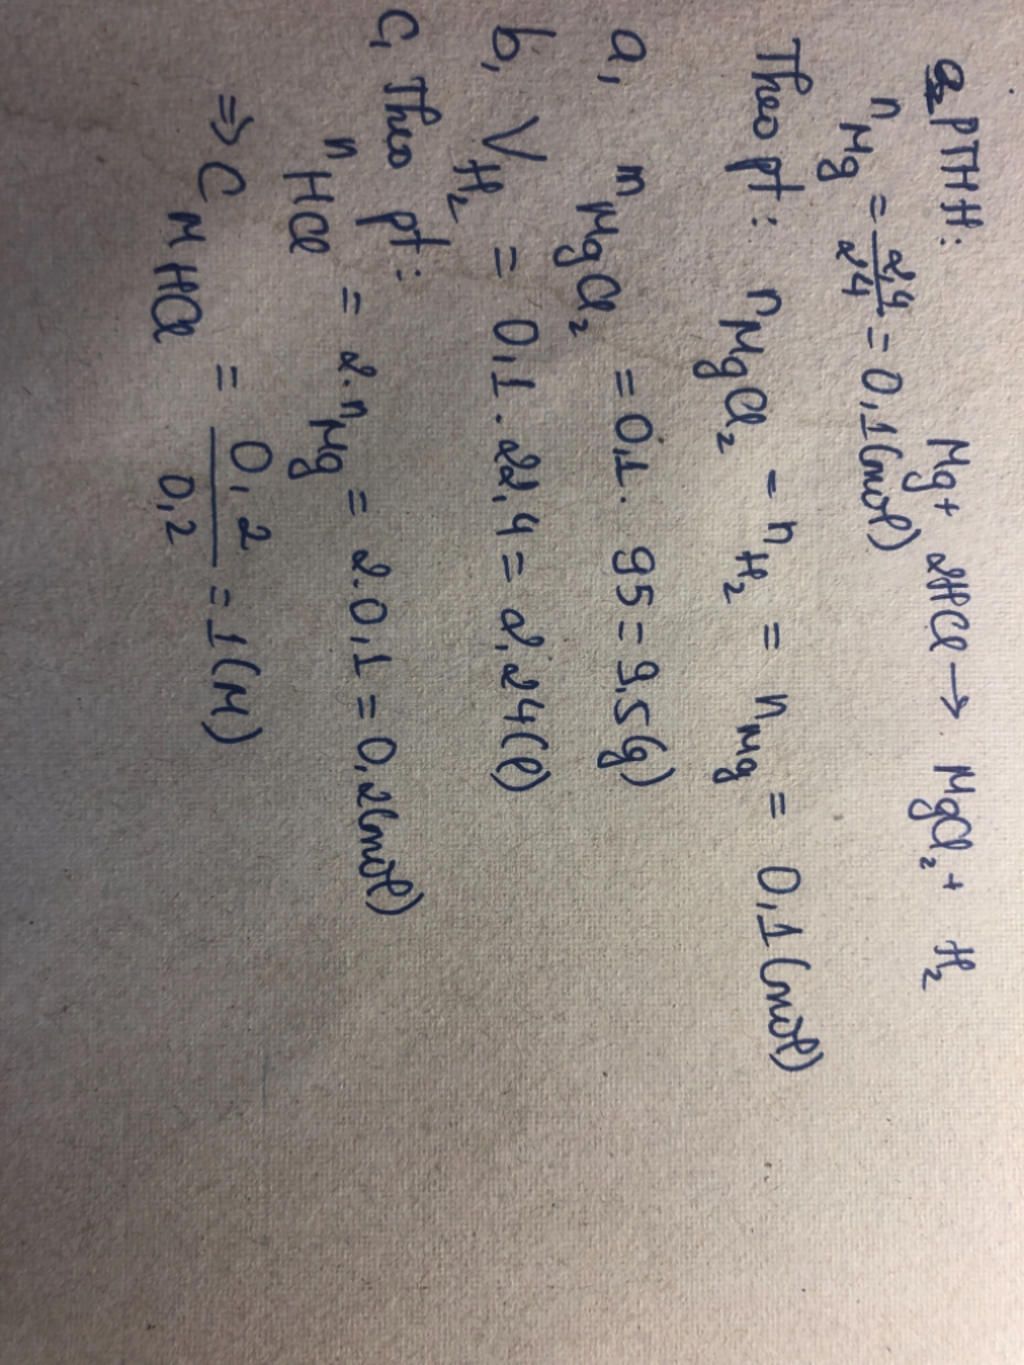 PTHH: Mg + 2HCl → MgCl₂ + H₂
n Mg = 2,4/24 = 0,1 (mol)
Theo pt: n MgCl₂ = n H₂ = n Mg = 0,1 (mol)
a, m MgCl₂ = 0,1 . 95 = 9,5 (g)
b, V H₂ = 0,1 . 22,4 = 2,24 (l)
c, Theo pt:
n HCl = 2.n Mg = 2.0,1 = 0,2 (mol)
⇒ C M HCl = 0,2/0,2 = 1 (M)